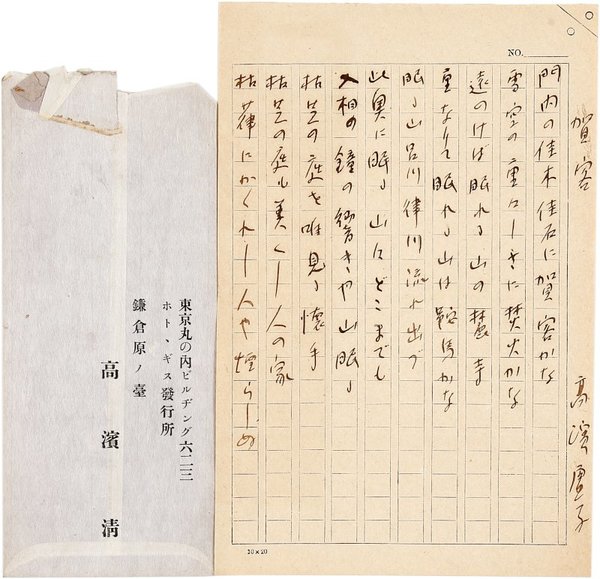 NO.
賀客 高濱虚子
門内の佳木佳石に賀客かな
雪空の重々しさに焚火かな
遠のけば眠れる山の麓寺
重なりて眠れる山は鞍馬かな
眠る山呂川律川流れ出づ
此奥に眠る山はどこまでも
入相の鐘の響きや山眠る
枯芝の庭を唯見る懐手
枯芝の庭も美くし人の家
枯葎にかくれし人や
10×20
東京丸の內ビルヂング六二三
ホトヽギス發行所
鎌倉原ノ臺
高濱清